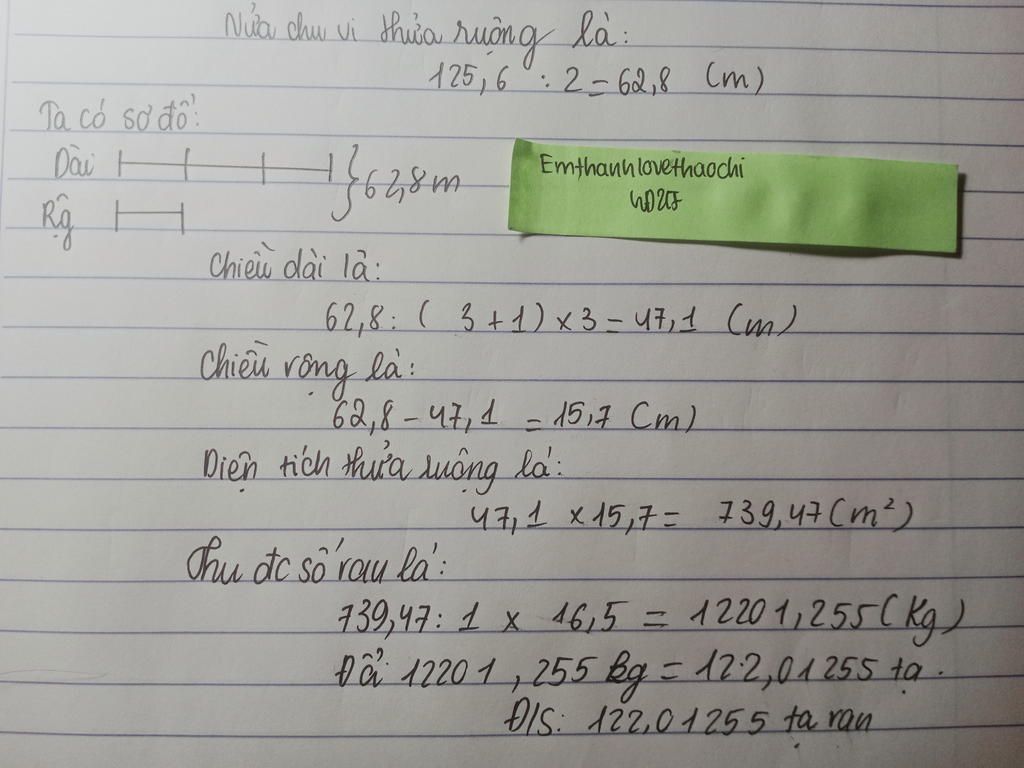 Nửa chu vi thửa ruộng là:
125,6 : 2 = 62,8 (m)
Ta có sơ đồ:
Dài
62,8m
Rộg
Emthanhlovethaochi
Chiều dài là:
62,8 : ( 3 + 1 ) × 3 = 47,1 (m)
Chiều rộng là:
62,8 - 47,1 = 15,7 (m)
Diện tích thửa ruộng là:
47,1 × 15,7 = 739,47 (m²)
Thu đc số rau là:
739,47 : 1 × 16,5 = 12201,255 (Kg)
Đổi 12201,255 kg = 122,01255 tạ.
Đ/S: 122,01255 tạ rau